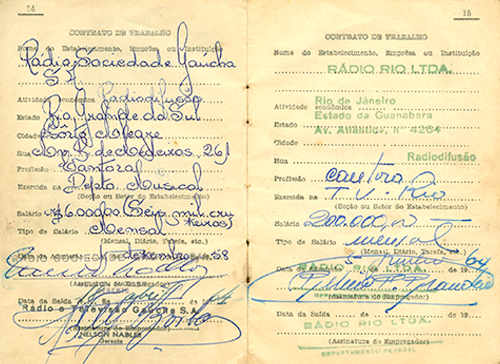 14
CONTRATO DE TRABALHO
Nome do Estabelecimento, Emprêsa ou Instituição
Rádio Sociedade Gaúcha
S/A
Atividade econômica Radiodifusão
Estado Rio Grande do Sul
Cidade Pôrto Alegre
Rua Av. B. de Medeiros, 261
Profissão Cantora
Exercida na Rádio Musical
(Seção ou Setor do Estabelecimento)
Salário 6.000,00 Seis mil cru
zeiros)
Tipo de Salário Mensal
(Mensal, Diário, Tarefa, etc.)
dezembro 58
(Assinatura do Empregador)
GERENTE
Data da Saída de 19
Rádio e Televisão Gaúcha S.A.
(Assinatura do Empregador)
NELSON NABLER
Gerente
15
CONTRATO DE TRABALHO
Nome do Estabelecimento, Emprêsa ou Instituição
RÁDIO RIO LTDA.
Rio de Janeiro
Atividade econômica
Estado da Guanabara
Estado
Av. Atlântica, nº 4264
Cidade
Radiodifusão
Rua
Profissão cantora
Exercida na T.V. Rio
(Seção ou Setor do Estabelecimento)
Salário 200.000,00
Tipo de Salário mensal
(Mensal, Diário, Tarefa, etc.)
64
RÁDIO RIO LTDA.
(Assinatura do Empregador)
Data da Saída de de 19
RÁDIO RIO LTDA.
(Assinatura do Empregador)
DEPARTAMENTO PESSOAL